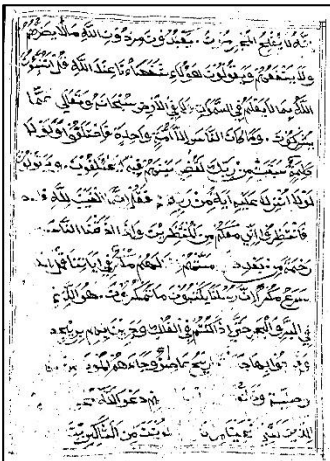 انه لا يفلح المجرمون ويعبدون من دون الله ما لا يضرهم
ولا ينفعهم ويقولون هؤلاء شفعاؤنا عند الله قل اتنبئون
الله بما لا يعلم في السموات ولا في الارض سبحانه وتعالى عما
يشركون وما كان الناس الا امة واحدة فاختلفوا ولولا
كلمة سبقت من ربك لقضي بينهم فيما فيه يختلفون ويقولون
لولا انزل عليه اية من ربه فقل انما الغيب لله
فانتظروا اني معكم من المنتظرين واذا اذقنا الناس
رحمة من بعد مستهم اذا لهم مكر في اياتنا قل الله
اسرع مكرا ان رسلنا يكتبون ما تمكرون هو الذي
في البر والبحر حتى اذا كنتم في الفلك وجرين بهم بريح
بها ريح عاصف وجاءهم الموج
دعوا الله
الدين لئن من الشاكرين